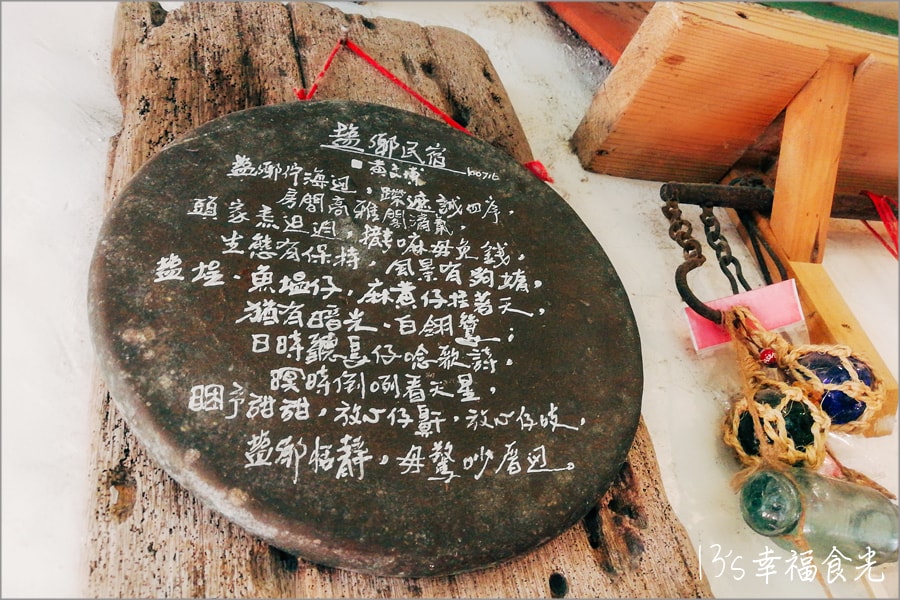 鹽鄉民宿
■黃文博 100716
鹽鄉佇海迌，蹽遮誠四序，
房間高雅閣清氣，
頭家煮迌迌，攏嘛毋免錢，
生態有保持，風景有夠媠，
鹽埕、魚塭仔，麻薏仔拄著天，
猶有暗光、白翎鷥；
日時聽鳥仔唸歌詩，
暝時倒咧看天星，
睏予甜甜，放心仔鼾，放心仔吱，
鹽鄉恬靜，毋驚吵厝迌。
13's幸福食光